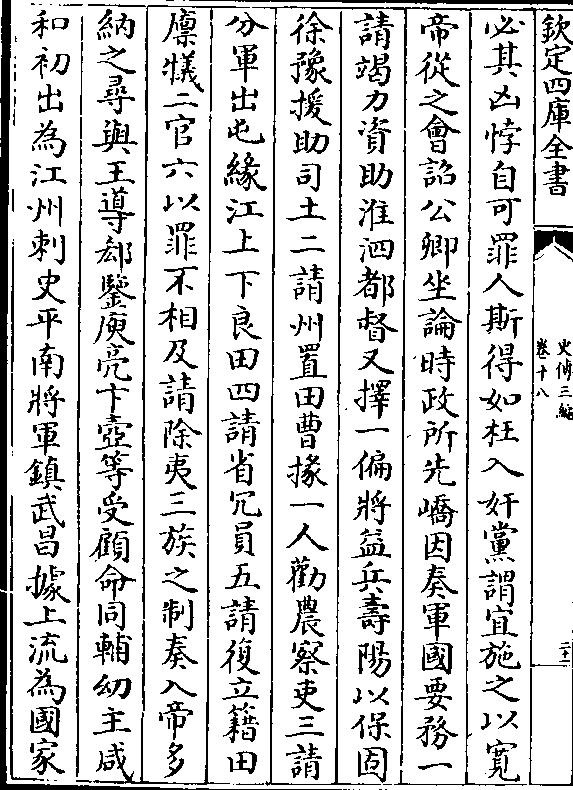 欽定四庫全書
史傳三編
卷十八
必其凶悖自可罪人斯得如枉入奸黨謂宜施之以寛
帝從之會詔公卿坐論時政所先嶠因奏軍國要務一
請竭力資助淮泗都督又擇一偏將益兵壽陽以保固
徐豫援助司土二請州置田曹掾一人勸農察吏三請
分軍出屯緣江上下良田四請省冗員五請復立籍田
廪犧二官六以罪不相及請除夷三族之制奏入帝多
納之尋與王導郄鑒庾亮卞壼等受顧命同輔幼主咸
和初出為江州刺史平南將軍鎮武昌據上流為國家